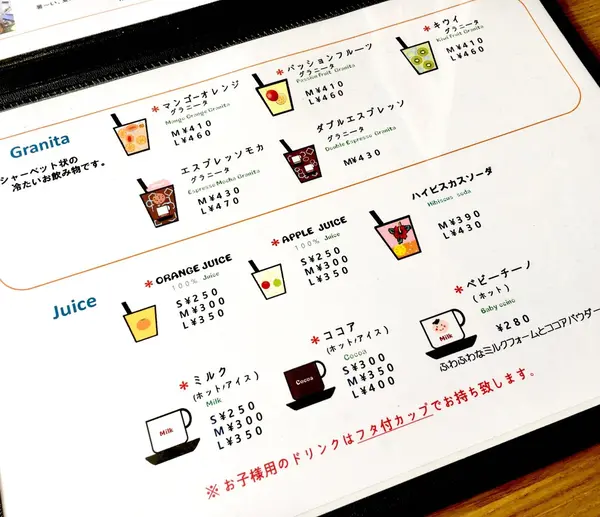 Granita
シャーベット状の
冷たいお飲み物です。
*マンゴーオレンジ
グラニータ
Mango Orange Granita
M¥410
L¥460
*パッションフルーツ
グラニータ
Passion fruit Granita
M¥410
L¥460
*キウイ
グラニータ
Kiwi fruit Granita
M¥410
L¥460
エスプレッソモカ
グラニータ
Espresso Mocha Granita
M¥430
L¥470
ダブルエスプレッソ
グラニータ
Double Espresso Granita
M¥430
Juice
*ORANGE JUICE
100% Juice
S¥250
M¥300
L¥350
*APPLE JUICE
100% Juice
S¥250
M¥300
L¥350
ハイビスカスソーダ
Hibiscus soda
M¥390
L¥430
*ミルク
(ホット/アイス)
Milk
S¥250
M¥300
L¥350
Milk
*ココア
(ホット/アイス)
Cocoa
S¥300
M¥350
L¥400
Cocoa
*ベビーチーノ
(ホット)
Baby ccino
¥280
Milk
ふわふわなミルクフォームとココアパウダー
※お子様用のドリンクはフタ付カップでお持ち致します。